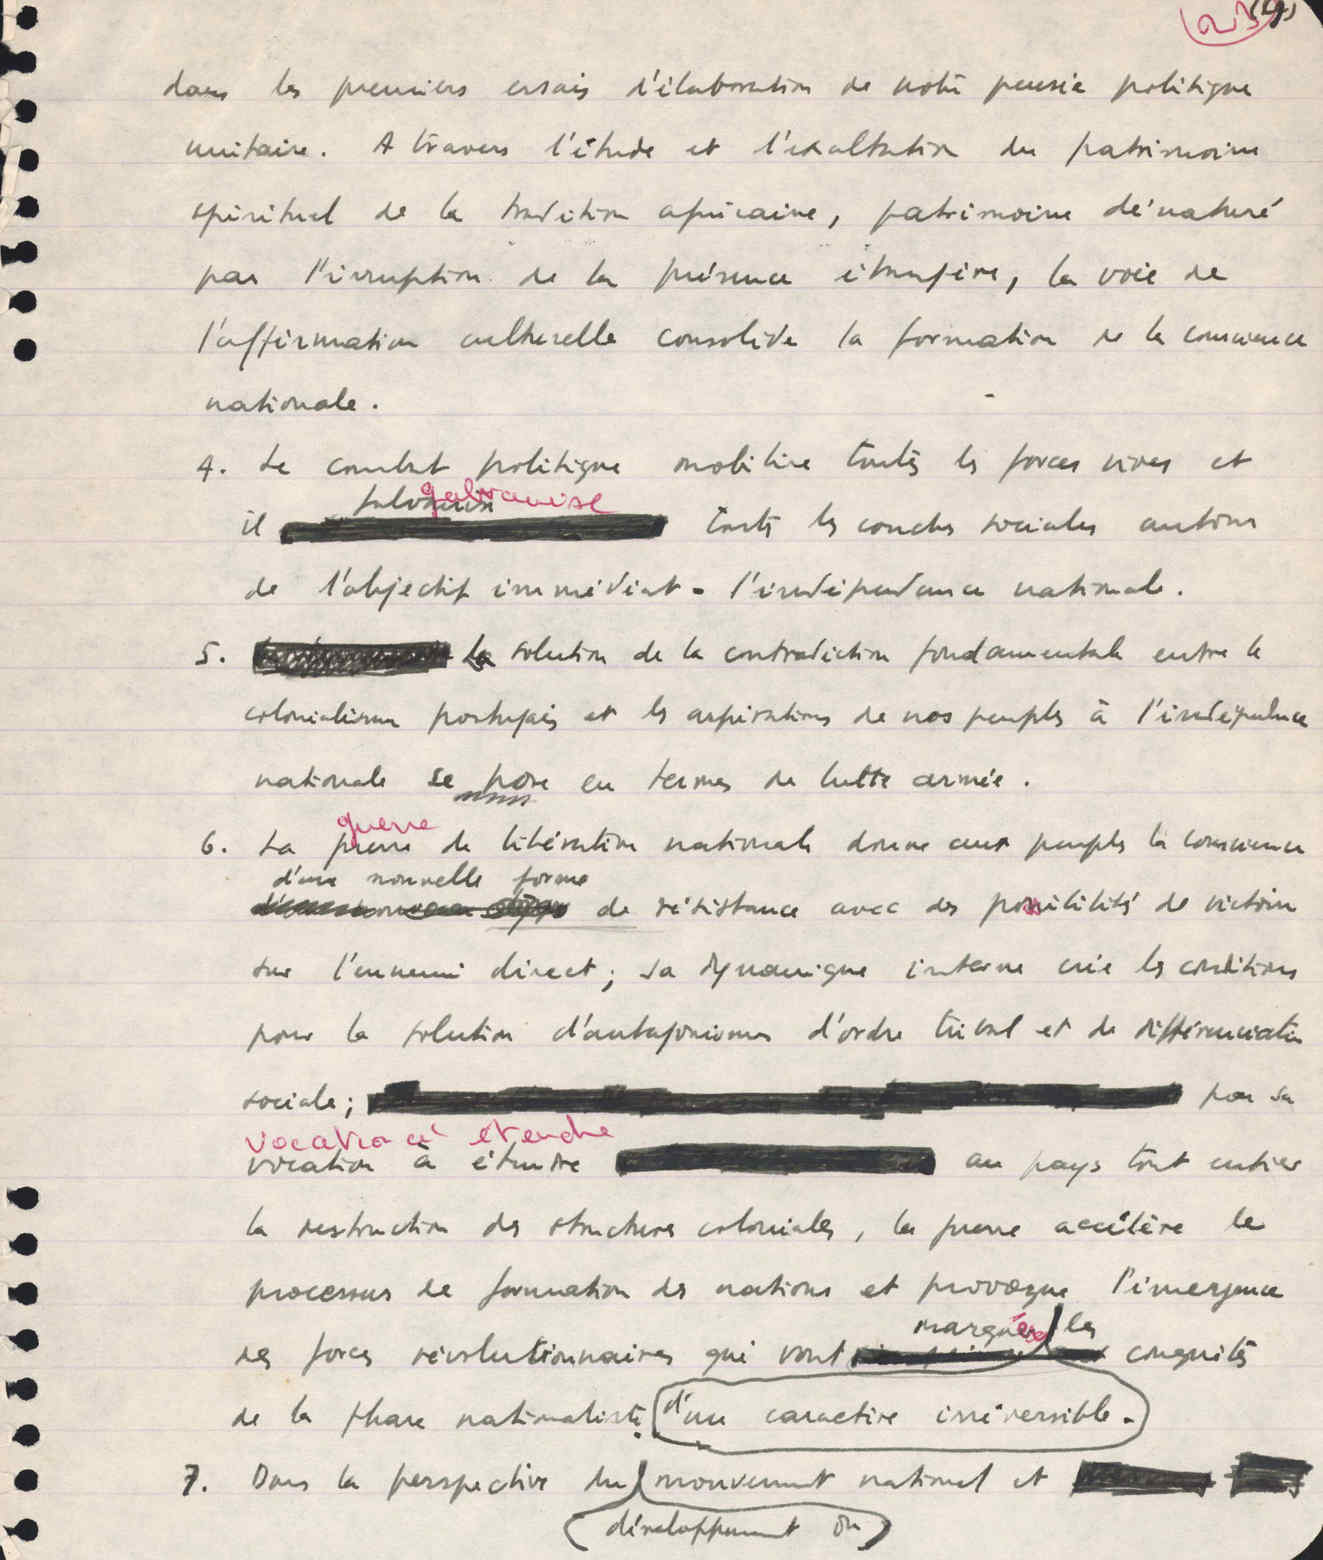 23 (4)
dans les premiers essais d'élaboration de notre pensée politique
unitaire. A travers l'étude et l'exaltation du patrimoine
spirituel de la tradition africaine, patrimoine dénaturé
par l'irruption de la présence étrangère, la voie de
l'affirmation culturelle consolide la formation de la conscience
nationale.
4. Le combat politique mobilise toutes les forces vives et
galvanise galvanise
il toutes les couches sociales autour
de l'objectif immédiat - l'indépendance nationale.
5. La solution de la contradiction fondamentale entre le
colonialisme portugais et les aspirations de nos peuples à l'indépendance
nationale se pose en termes de lutte armée.
guerre
6. La guerre de libération nationale donne aux peuples la conscience
d'une nouvelle forme
de résistance avec des possibilités de victoire
sur l'ennemi direct; sa dynamique interne crée les conditions
pour la solution d'antagonismes d'ordre tribal et de différenciation
sociale; par sa
vocation à étendre
vocation à étendre au pays tout entier
la destruction des structures coloniales, la guerre accélère le
processus de formation des nations et provoque l'émergence
marquer les
des forces révolutionnaires qui vont conquêtes
de la phase nationaliste. d'un caractère irréversible.
7. Dans la perspective du mouvement national et
développement du